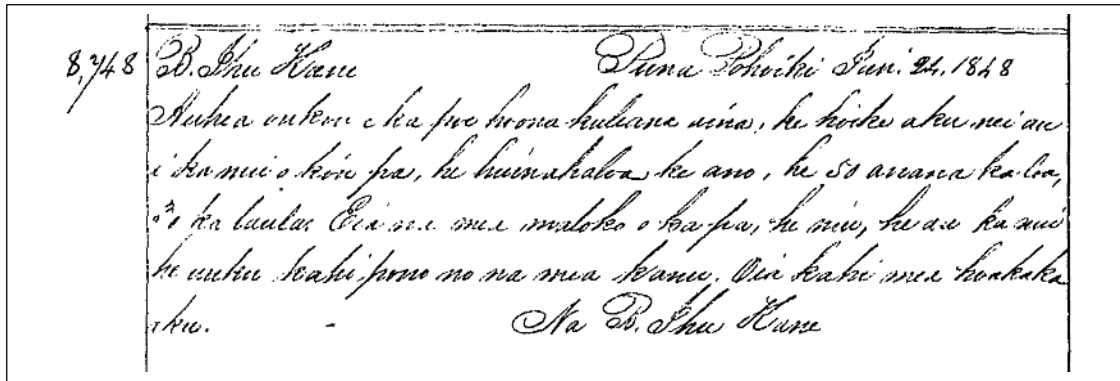 8,748 B. Ihu Kane Puna Pohoiki Jun. 24, 1848
Auhea oukou e ka poe hoona kuleana aina, ke hoike aku nei au
i ka nui o ko'u pa, he huinahaloa ke ano, he 50 anana ka loa,
ka laula. Eia na mea maloko o ka pa, he niu, he ka nui
he uuku kahi pono no na mea kanu. Oia kahi mea hoakaka
aku. - Na B. Ihu Kane